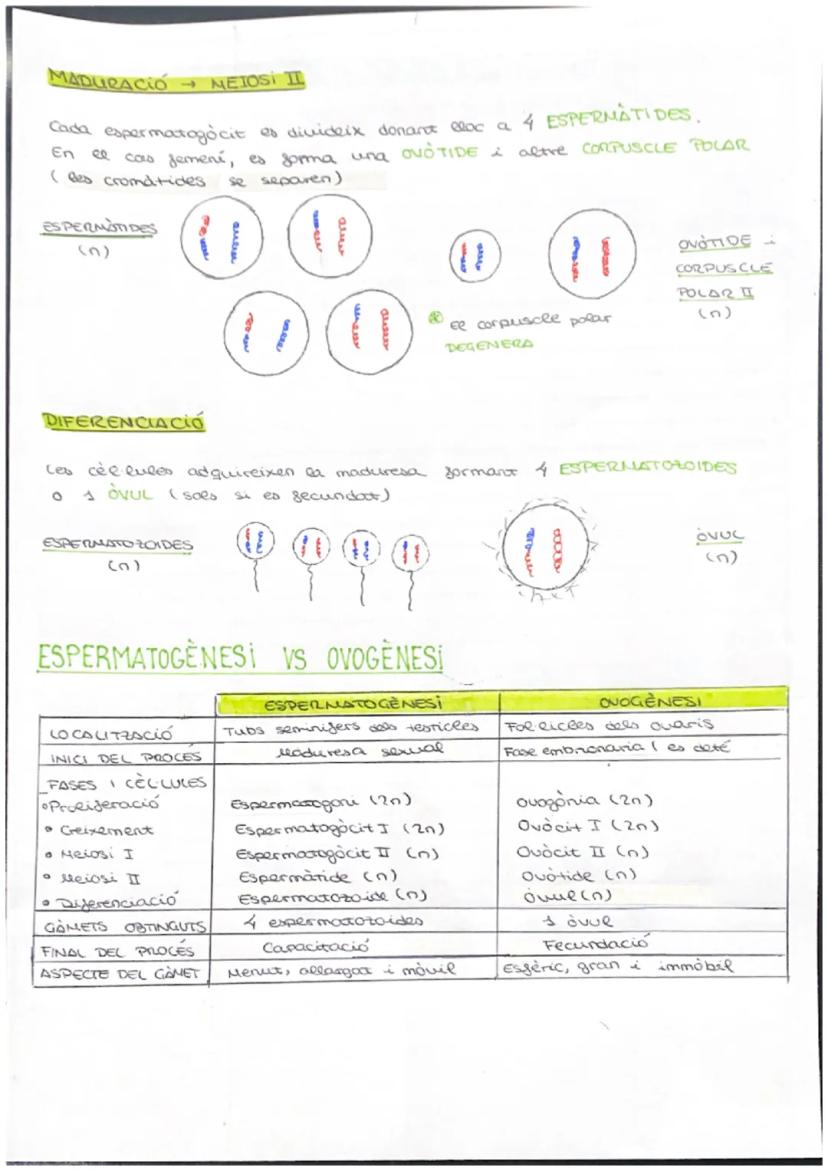 MADURACIÓ → MEIOSI II
Cada espermatogòcit es divideix donant lloc a 4 ESPERMÀTIDES.
En el cas femení, es forma una OVÒTIDE i altre CORPUSCLE POLAR
(les cromàtides se separen)
ESPERMÀTIDES
(n)
OVÒTIDE i
CORPUSCLE
POLAR II
(n)
* El corpuscle polar
DEGENERA
DIFERENCIACIÓ
Les cèl·lules adquireixen la maduresa formant 4 ESPERMATOZOIDES
o 1 ÒVUL (sols si es fecundat)
ESPERMATOZOIDES
(n)
ÒVUL
(n)
ESPERMATOGÈNESI VS OVOGÈNESI
ESPERMATOGÈNESI OVOGÈNESI
LOCALITZACIÓ Tubs seminífers dels testicles Fol·licles dels ovaris
INICI DEL PROCÉS Maduresa sexual Fase embrionaria i es deté
FASES I CÈL·LULES
• Proliferació Espermatogoni (2n) Ovogònia (2n)
• Creixement Espermatogòcit I (2n) Ovòcit I (2n)
• Meiosi I Espermatogòcit II (n) Ovòcit II (n)
• Meiosi II Espermàtide (n) Ovòtide (n)
• Diferenciació Espermatozoide (n) Òvul (n)
GÀMETS OBTINGUTS 4 espermatozoides 1 òvul
FINAL DEL PROCÉS Capacitació Fecundació
ASPECTE DEL GÀMET Menut, allargat i mòvil Esfèric, gran i immòbil